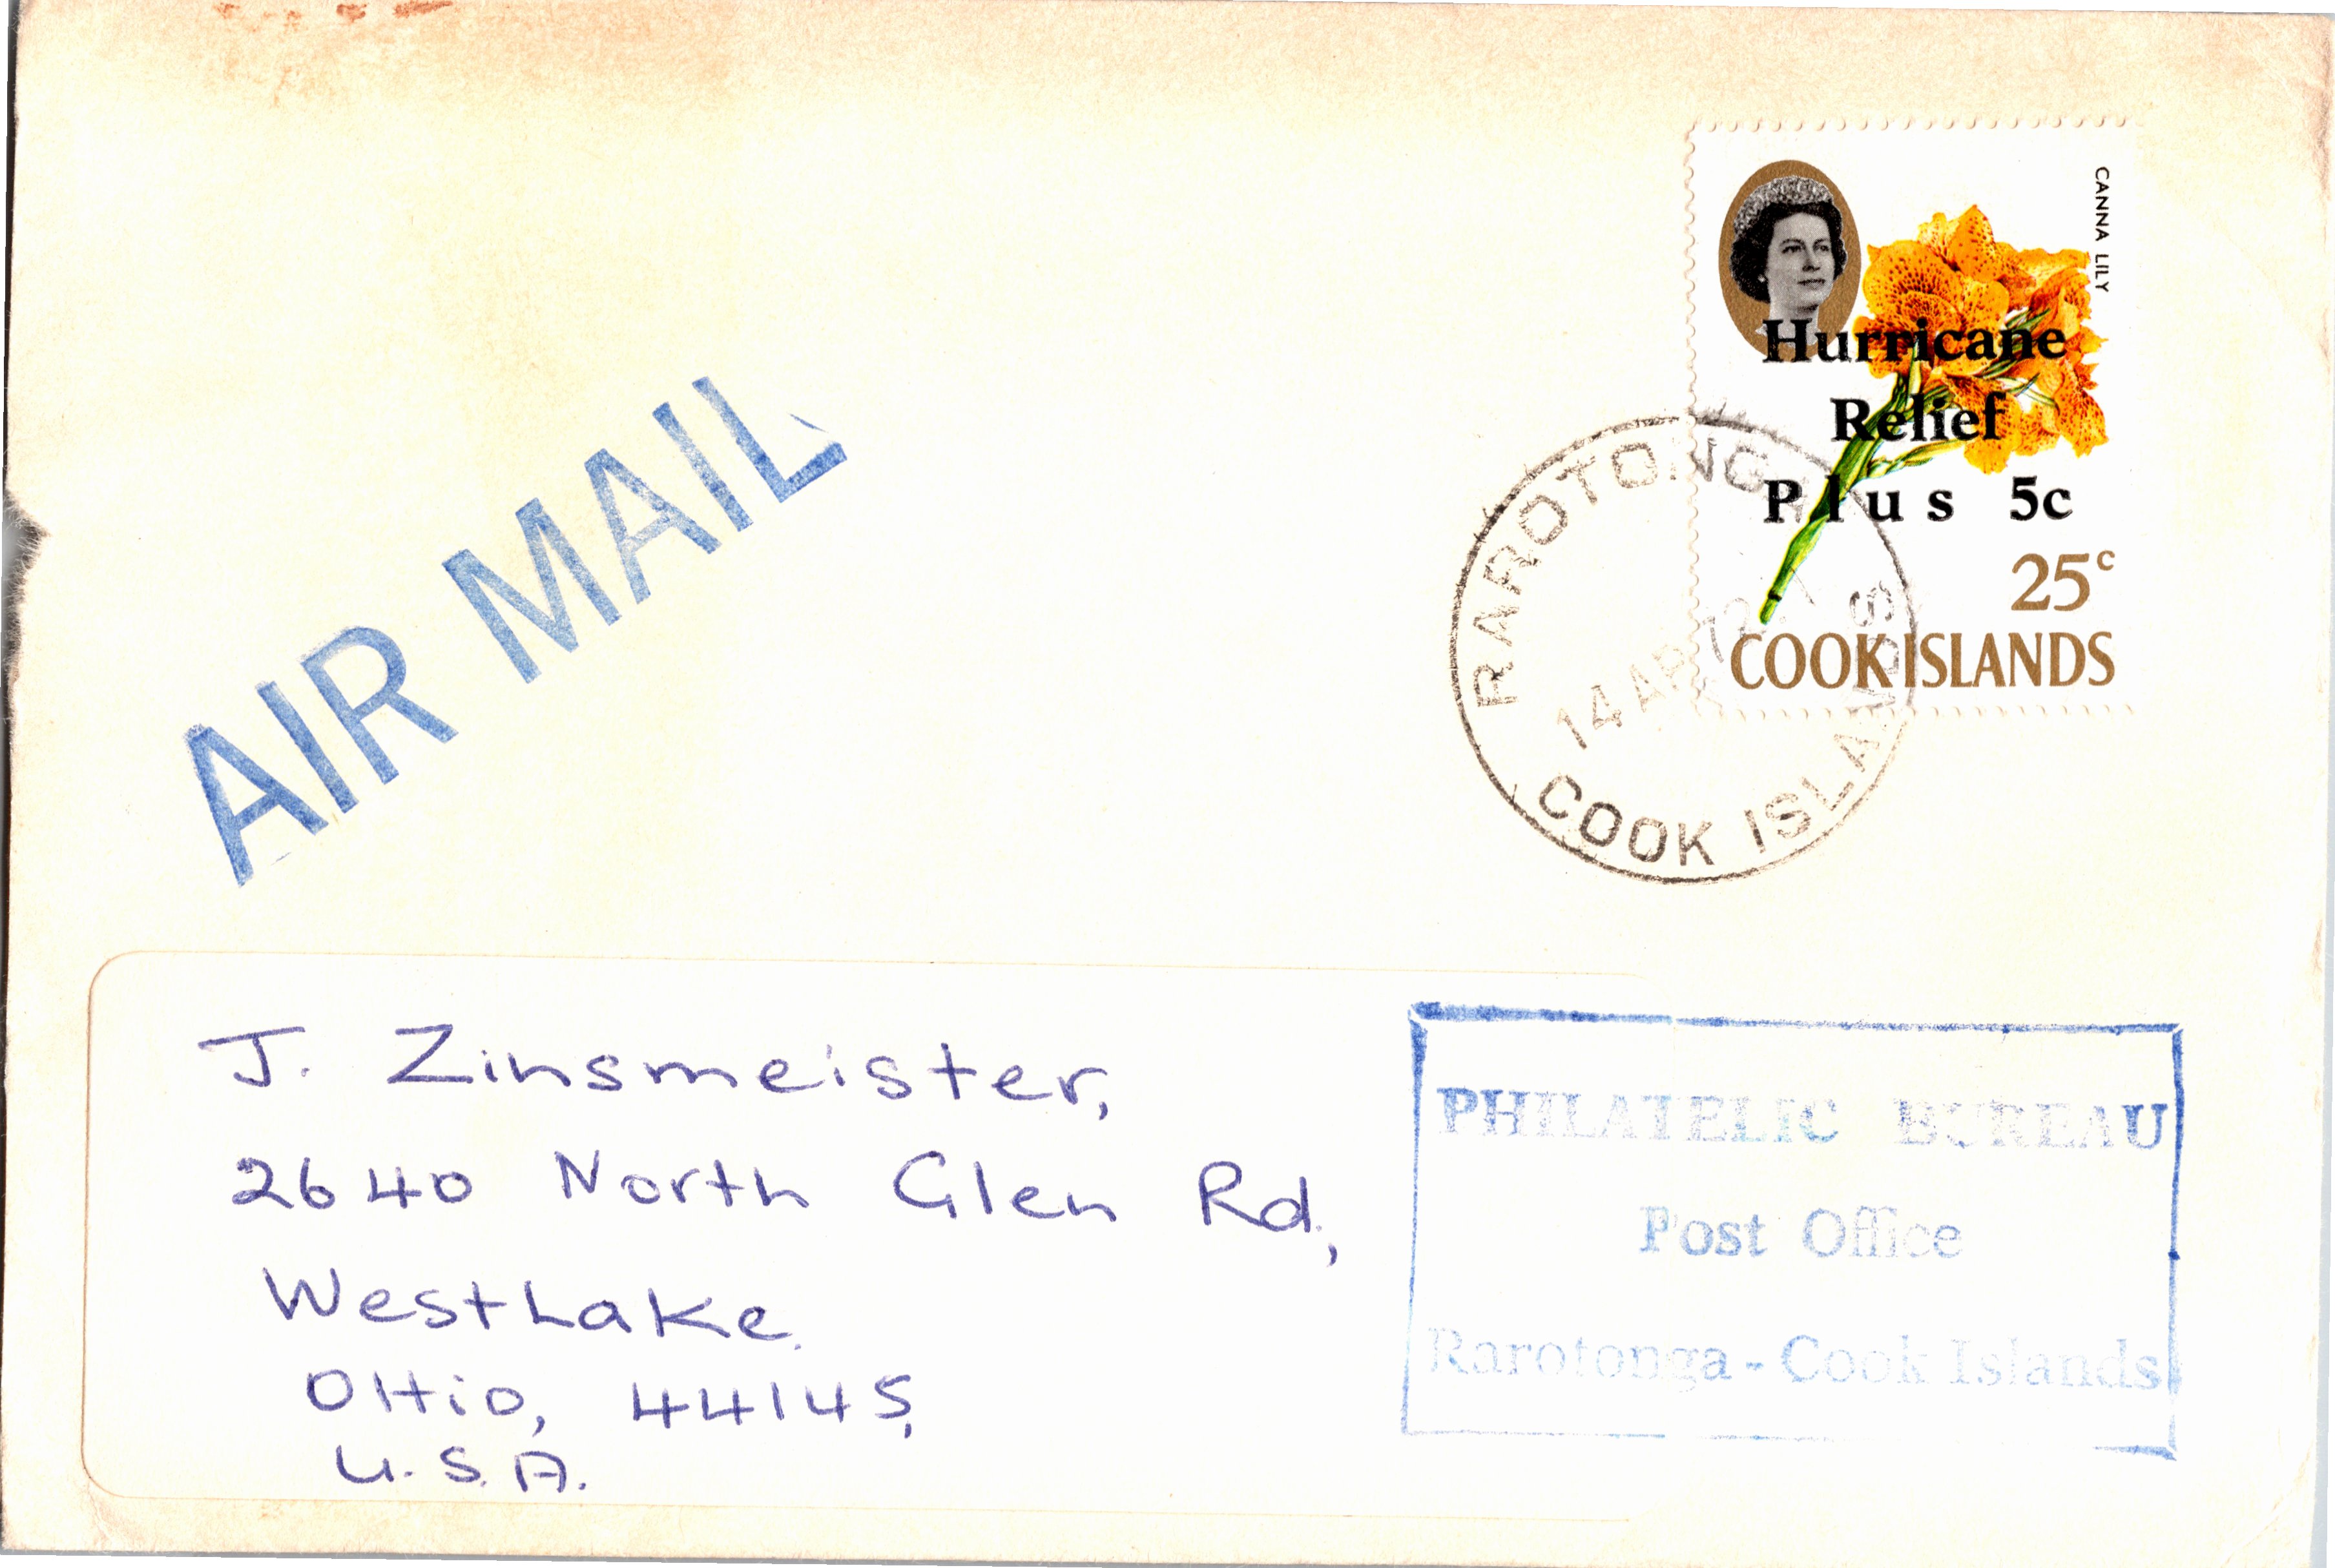 CANNA LILY
Hurricane
Relief
Plus 5c
25c
COOK ISLANDS
RAROTONGA
14 AP 72
COOK ISLANDS
AIR MAIL
J. Zinsmeister,
2640 North Glen Rd.,
WestLake.
OHio, 44145,
U.S.A.
PHILATELIC BUREAU
Post Office
Rarotonga - Cook Islands